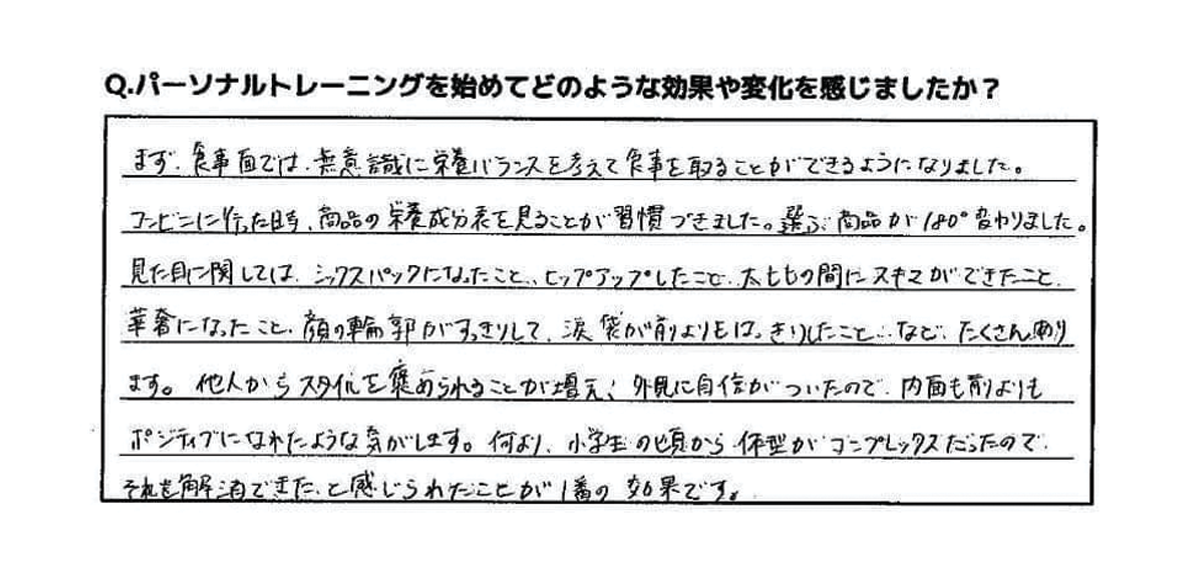 Q.パーソナルトレーニングを始めてどのような効果や変化を感じましたか？
まず、食事面では、無意識に栄養バランスを考えて食事を取ることができるようになりました。
コンビニに行った時、商品の栄養成分表を見ることが習慣づきました。選ぶ商品が180°変わりました。
見た目に関しては、シックスパックになったこと、ヒップアップしたこと、太ももの間にスキマができたこと、
華奢になったこと、顔の輪郭がすっきりして、涙袋が前よりもはっきりしたこと…など、たくさんあり
ます。他人からスタイルを褒められることが増え、外見に自信がついたので、内面も前よりも
ポジティブになれたような気がします。何より、小学生の頃から体型がコンプレックスだったので、
それを解消できた、と感じられたことが1番の効果です。